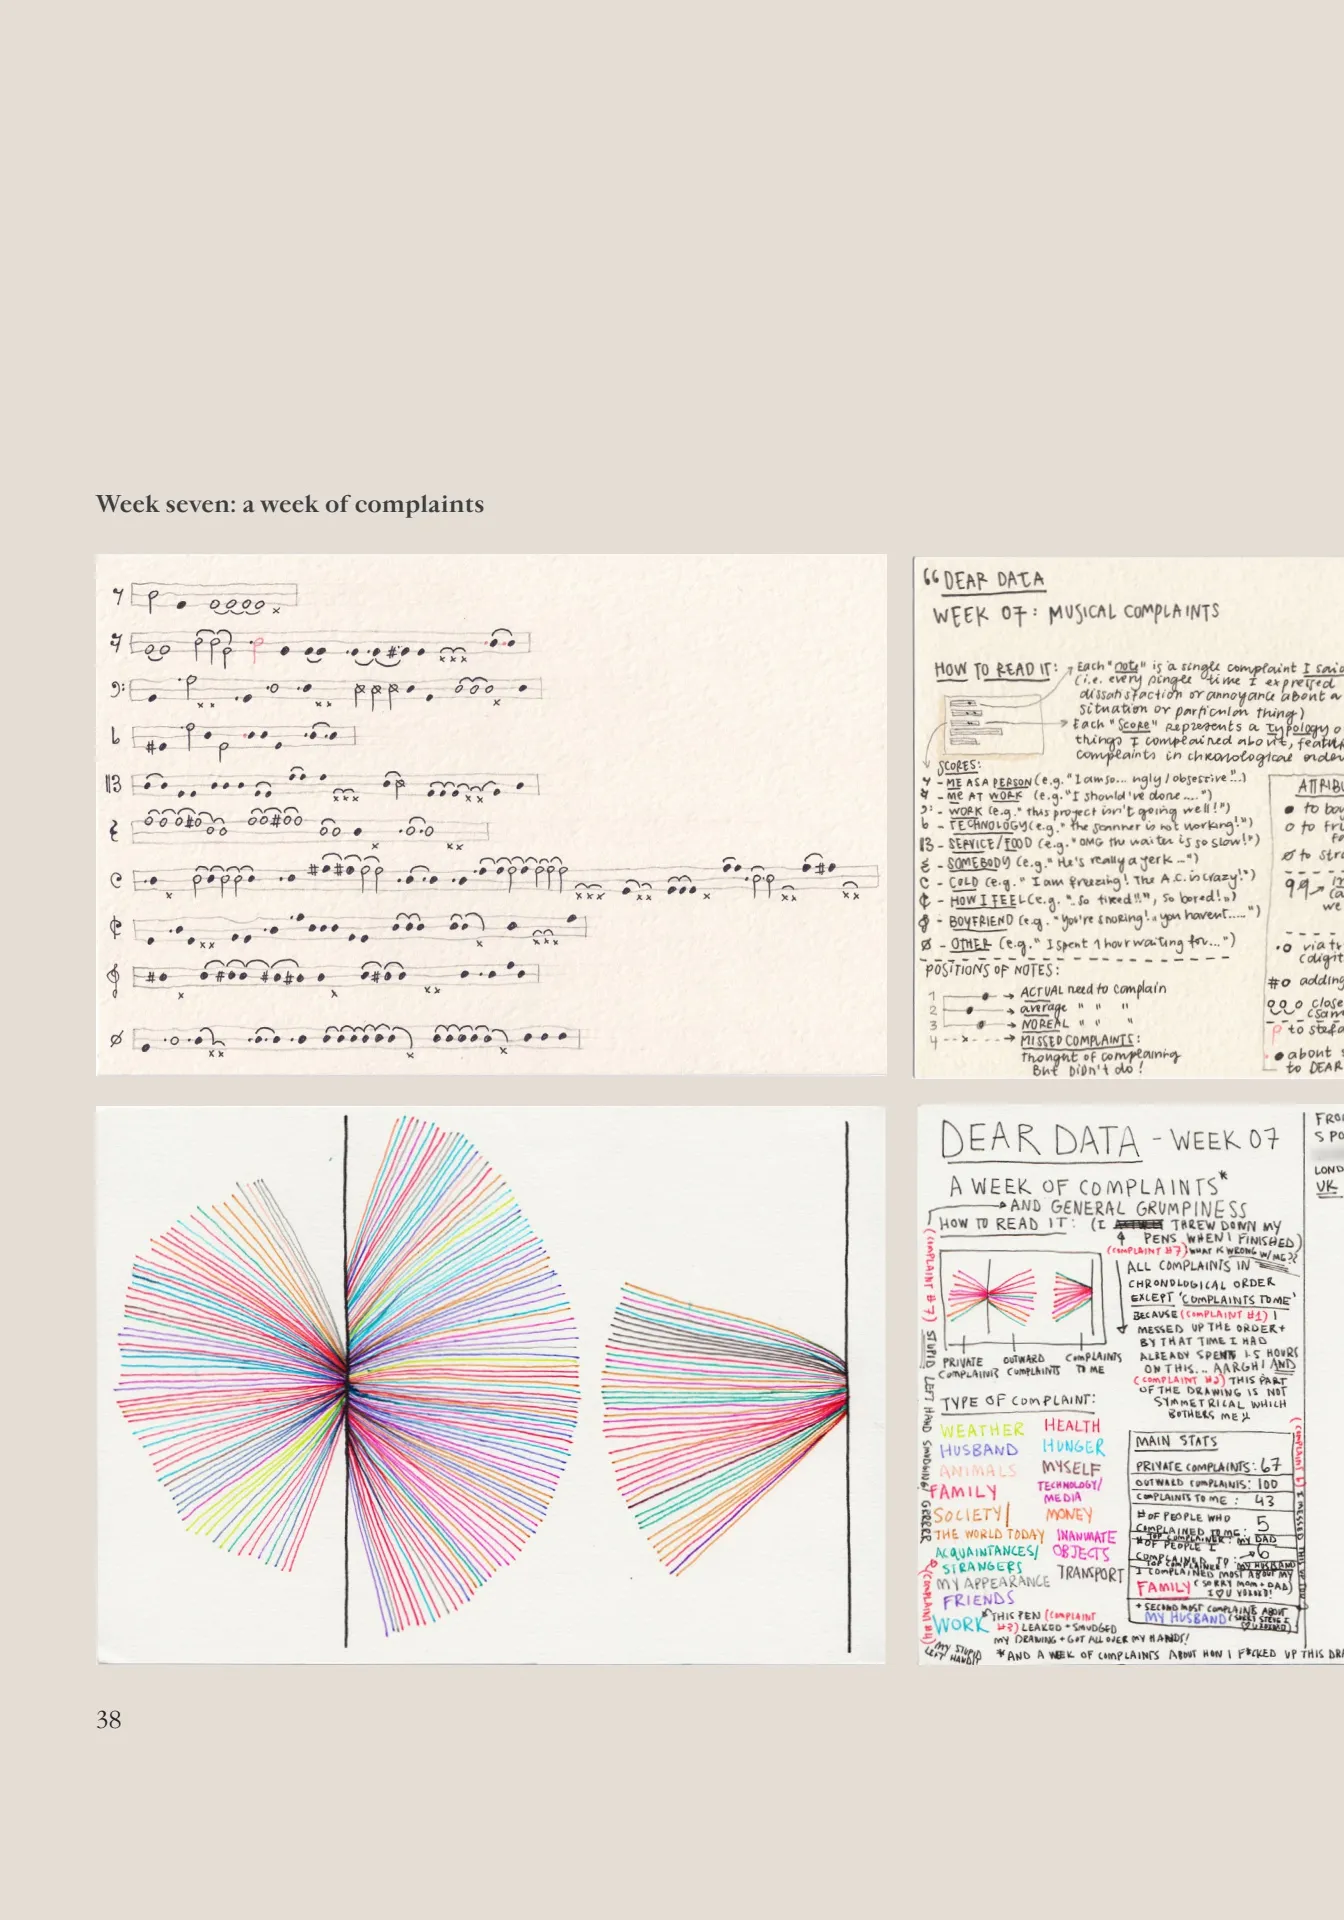 Week seven: a week of complaints
DEAR DATA
WEEK 07: MUSICAL COMPLAINTS
HOW TO READ IT:
Each "note" is a single complaint I said
(i.e. every single time I expressed
dissatisfaction or annoyance about a
situation or particular thing)
Each "Score" represents a typology o
things I complained about, featu
complaints in chronological order
SCORES:
- ME AS A PERSON (e.g. "I am so... ugly / obsessive"...)
- ME AT WORK (e.g. "I should've done....")
- WORK (e.g. "this project isn't going well!")
- TECHNOLOGY (e.g. "the scanner is not working!")
- SERVICE/FOOD (e.g. "OMG the waiter is so slow!")
- SOMEBODY (e.g. "He's really a jerk...")
- COLD (e.g. "I am freezing! The A.C. is crazy!")
- HOW I FEEL (e.g. "..so tired!!", so bored!")
- BOYFRIEND (e.g. "You're snoring!.. you haven't.....")
- OTHER (e.g. "I spent 1 hour waiting for...")
POSITIONS OF NOTES:
1 → ACTUAL need to complain
2 → average " " "
3 → NO REAL " " "
4 → MISSED COMPLAINTS:
Thought of complaining
But Didn't do!
ATTRIBU
to boy
to fri
to stra
we
via t
(digit
adding
close
(sam
to stefa
about
to DEAR
DEAR DATA - WEEK 07
A WEEK OF COMPLAINTS*
AND GENERAL GRUMPINESS
HOW TO READ IT: (I THREW DOWN MY
PENS WHEN I FINISHED)
(COMPLAINT #7) WHAT IS WRONG W/ME??
ALL COMPLAINTS IN
CHRONOLOGICAL ORDER
EXCEPT 'COMPLAINTS TO ME'
BECAUSE (COMPLAINT #1) I
MESSED UP THE ORDER +
BY THAT TIME I HAD
ALREADY SPENT 1.5 HOURS
ON THIS... AARGH! AND
(COMPLAINT #2) THIS PART
OF THE DRAWING IS NOT
SYMMETRICAL WHICH
BOTHERS ME
PRIVATE COMPLAINTS
OUTWARD COMPLAINTS
COMPLAINTS TO ME
TYPE OF COMPLAINT:
WEATHER
HUSBAND
ANIMALS
FAMILY
SOCIETY/
THE WORLD TODAY
ACQUAINTANCES/
STRANGERS
MY APPEARANCE
FRIENDS
WORK
HEALTH
HUNGER
MYSELF
TECHNOLOGY/
MEDIA
MONEY
INANIMATE
OBJECTS
TRANSPORT
MAIN STATS
PRIVATE COMPLAINTS: 67
OUTWARD COMPLAINTS: 100
COMPLAINTS TO ME: 43
# OF PEOPLE WHO
COMPLAINED TO ME: 5
TOP COMPLAINER: MY DAD
# OF PEOPLE I
COMPLAINED TO: 6
TOP COMPLAINER: MY HUSBAND
I COMPLAINED MOST ABOUT MY
FAMILY (SORRY MOM + DAD)
+ SECOND MOST COMPLAINTS ABOUT
MY HUSBAND
*THIS PEN (COMPLAINT
#3) LEAKED + SMUDGED
MY DRAWING + GOT ALL OVER MY HANDS!
*AND A WEEK OF COMPLAINTS ABOUT HOW I F*CKED UP THIS DRA
(COMPLAINT #7) STUPID LEFT HAND SMUDGING! GRRRR
(COMPLAINT #4)
MY STUPID
LEFT HAND!!
FRO
S PO
LOND
UK
38